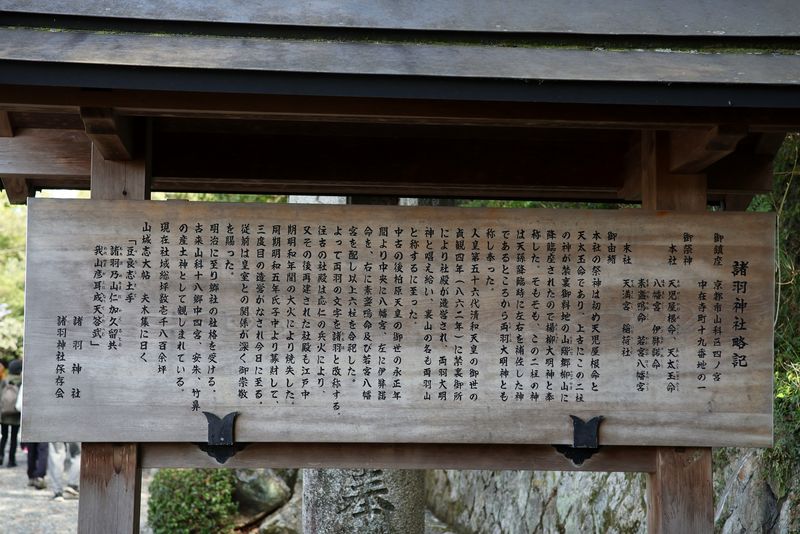 諸羽神社略記
御鎮座　京都市山科区四ノ宮
中在寺町十九番地の一
御祭神
本社　天児屋根命、天太玉命
八幡宮　伊弉諾命
素盞嗚命　若宮八幡宮
末社　天満宮　稲荷社
御由緒
本社の祭神は初め天児屋根命と
天太玉命であり、上古にこの二柱
の神が禁裏御料地の山階郷柳山に
降臨座されたので楊柳大明神と奉
称した。そもそも、この二柱の神
は天孫降臨時に左右を補佐した神
であるところから両羽大明神とも
称し奉った。
人皇第五十六代清和天皇の御世の
貞観四年（八六二年）に禁裏御所
により社殿が造営され、両羽大明
神と唱え給い、裏山の名も両羽山
と称するに至った
中古の後柏原天皇の御世の永正年
間より中央に八幡宮、左に伊弉諾
命を、右に素盞嗚命及び若宮八幡
宮を配し以上六柱を合祀した。
よって両羽の文字を諸羽と改称する。
往古の社殿は応仁の兵火により、
又その後再建された社殿も江戸中
期明和年間の大火により焼失した。
同期明和五年氏子中より募財して、
三度目の造営がなされ今日に至る。
従前は皇室との関係が深く御崇敬
を賜った。
明治に至り郷社の社格を受ける。
古来山科十八郷中四宮、安朱、竹鼻
の産土神として親しまれている。
現在社域総坪数壱千八百余坪
山城志大帖　夫木集に曰く
「豆良志土手
諸羽乃山仁加久留共
我山彦耳成天答武」
諸羽神社
諸羽神社保存会